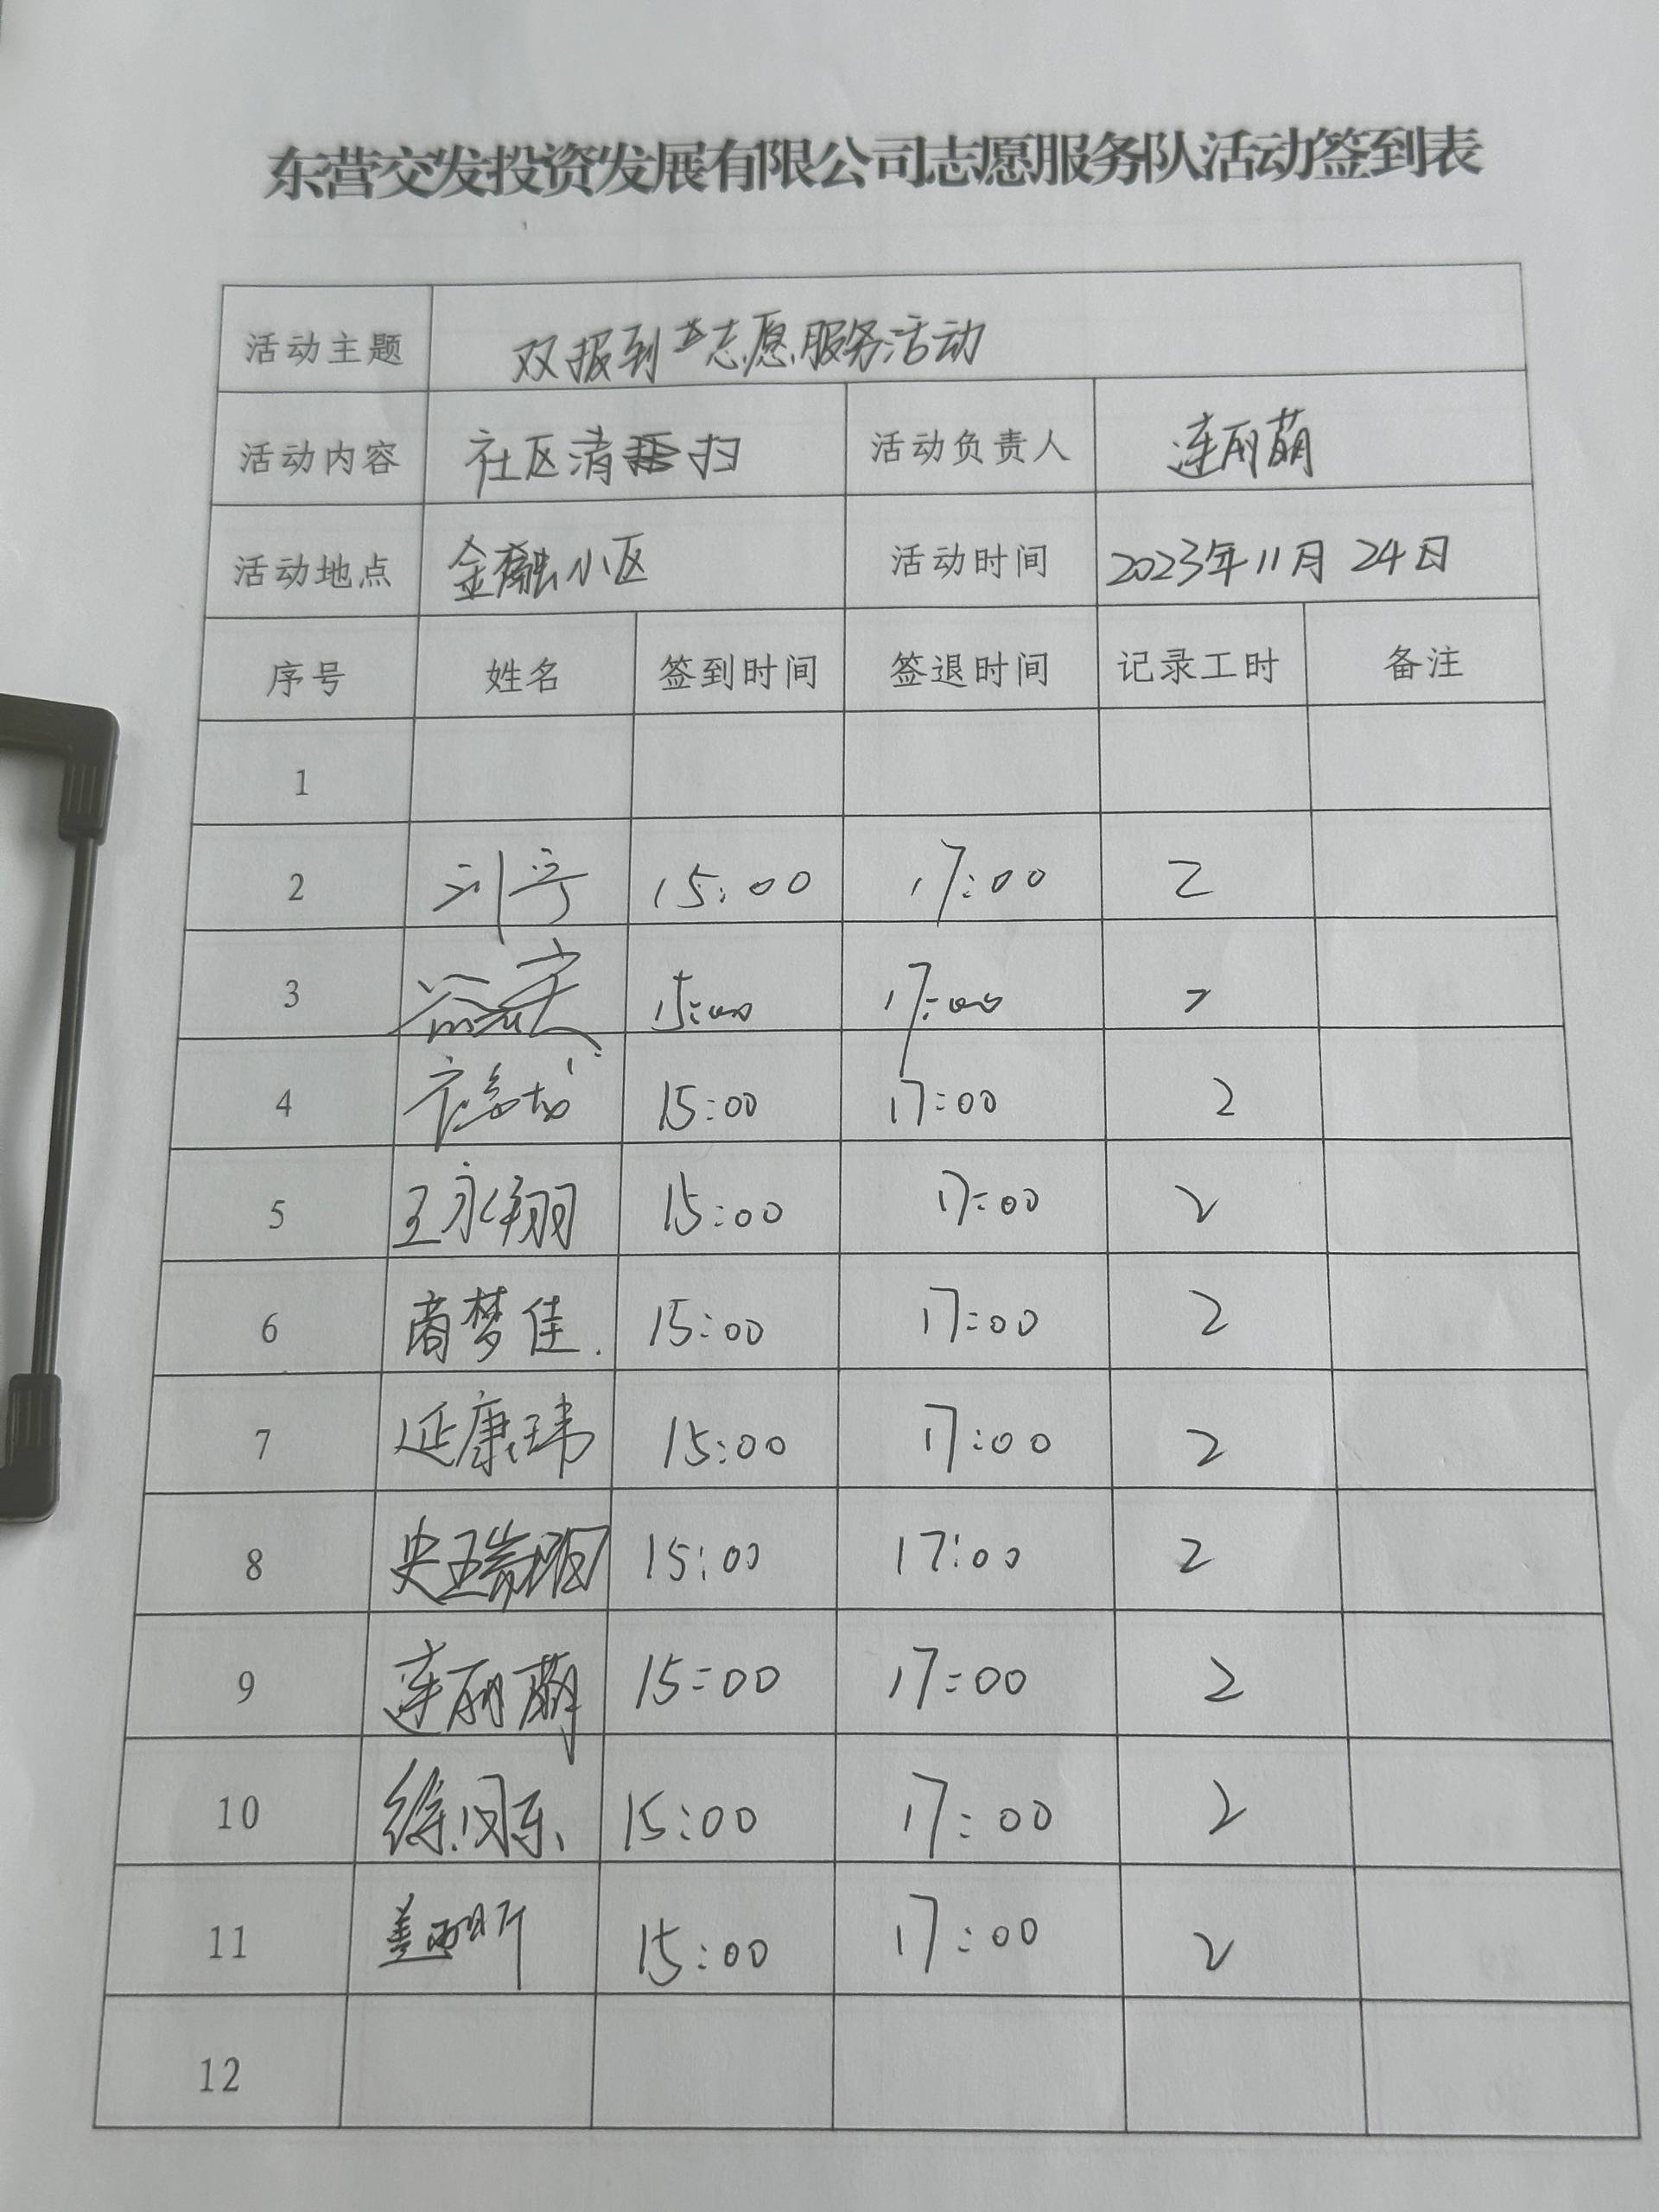 东营交发投资发展有限公司志愿服务队活动签到表
活动主题 双报到志愿服务活动
活动内容 社区清扫 活动负责人 连丽萌
活动地点 金融小区 活动时间 2023年11月24日
序号 姓名 签到时间 签退时间 记录工时 备注
1
2 15:00 17:00 2
3 15:00 17:00 2
4 15:00 17:00 2
5 王永翔 15:00 17:00 2
6 商梦佳 15:00 17:00 2
7 延康玮 15:00 17:00 2
8 15:00 17:00 2
9 连丽萌 15:00 17:00 2
10 15:00 17:00 2
11 15:00 17:00 2
12